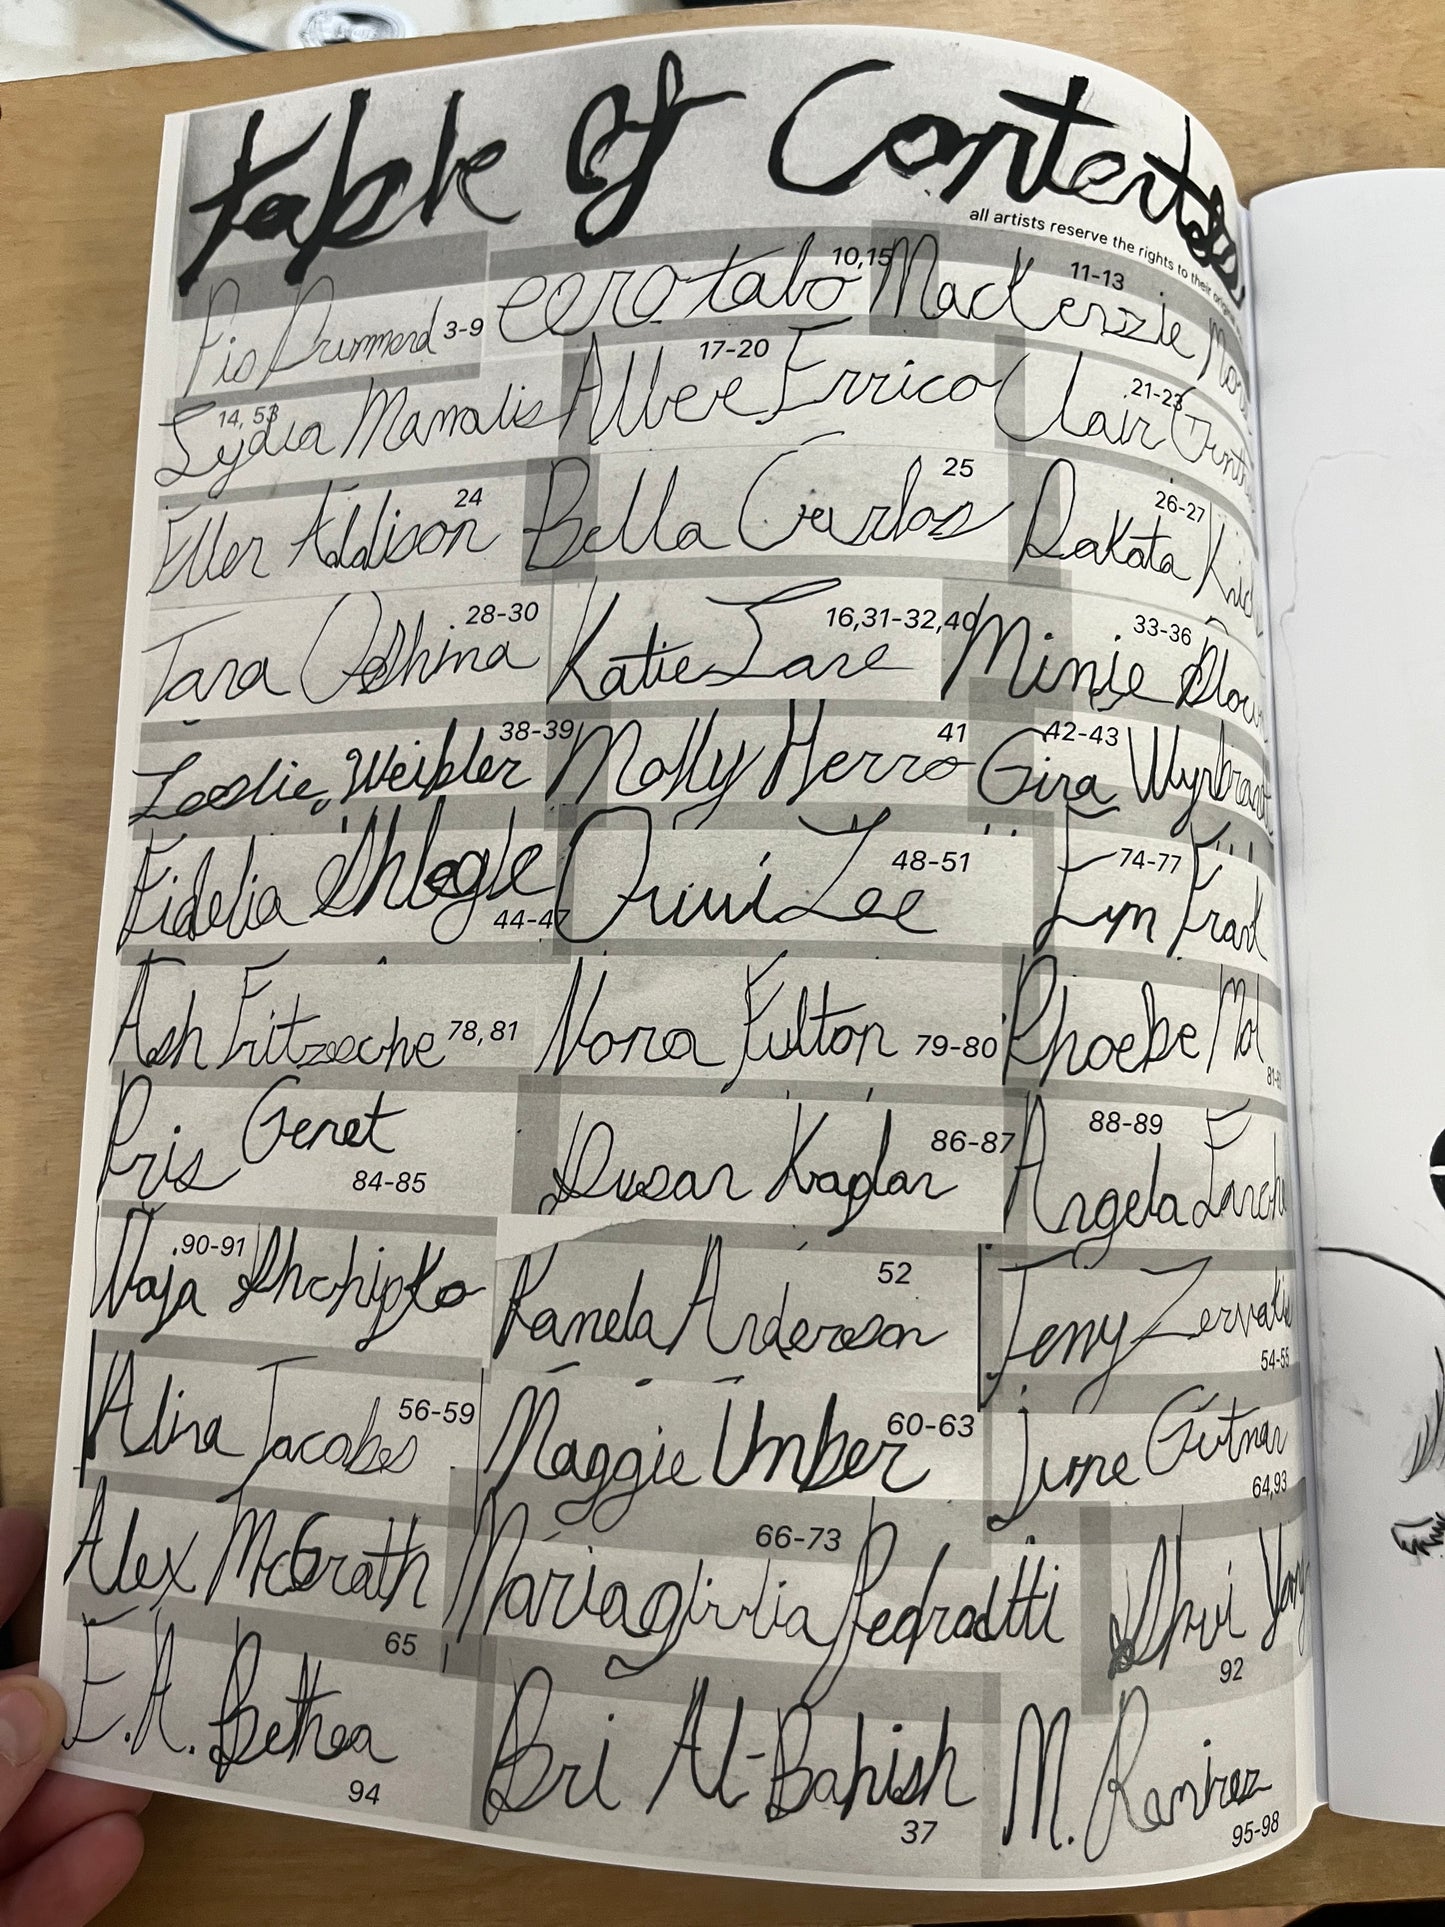 Table of Contents
all artists reserve the rights to their
Pis Drummond 3-9 eero talo 10,15 MacKenzie 11-13
Lydia Mamalis 14, 53 Albee Errico 17-20 Clair 21-23
Eller Addison 24 Bella Carlos 25 Dakota 26-27
Tara Oshima 28-30 Katie Lane 16,31-32,40 Minie 33-36
Leslie Weibler 38-39 Molly Herro 41 Gina Wynbrandt 42-43
Fidelia Shlegle 44-47 Lee 48-51 Eyn Frank 74-77
Ash Fritzsche 78,81 Nora Fulton 79-80 Phoebe Mol
Pris Genet 84-85 Susan Kaplan 86-87 Angela 88-89
Naja Shchipko 90-91 Kamela Anderson 52 Jenny Zervakis 54-55
Alina Jacobs 56-59 Maggie Umber 60-63 June Gutman 64,93
Alex McGrath 65 Mariagiulia Pedrotti 66-73 Shui Yang 92
E.A. Bethea 94 Bri Al-Bahish 37 M. Ramirez 95-98